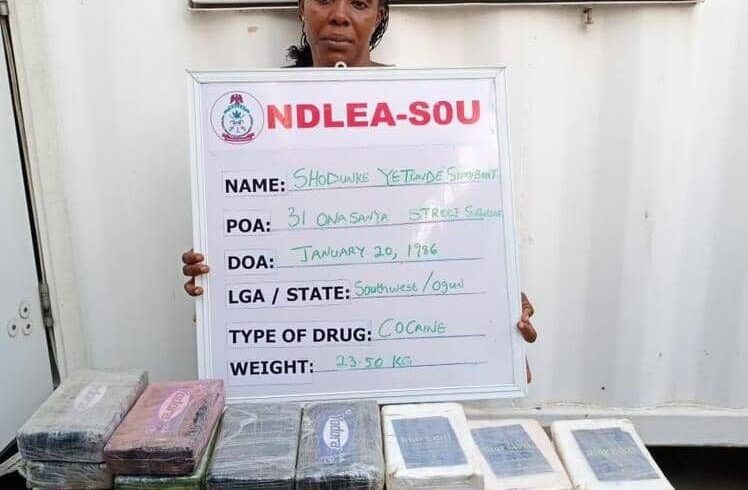 NDLEA-SOU
NAME: SHODUNKE YETUNDE
POA: 31 ONASANYA STREET
DOA: JANUARY 20, 1986
LGA / STATE: Southwest/Ogun
TYPE OF DRUG: COCAINE
WEIGHT: 23.50 KG